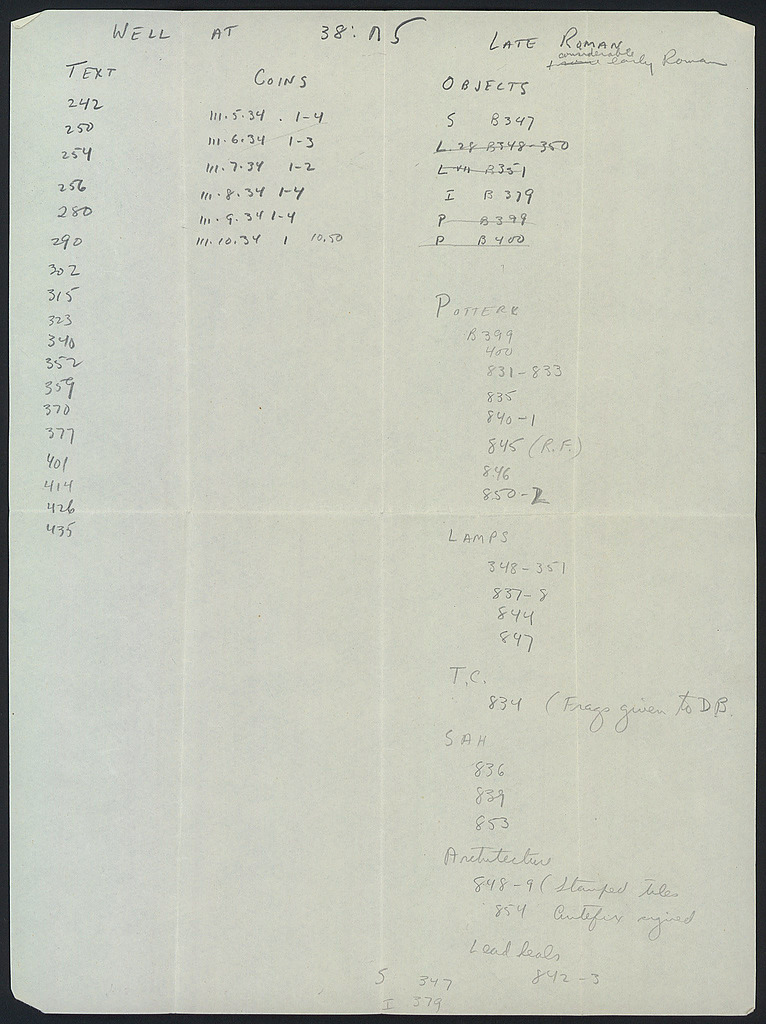 WELL AT 38:ΛΕ
LATE ROMAN
considerable
+ some early Roman
TEXT
242
250
254
256
280
290
302
315
323
340
352
359
370
377
401
414
426
435
COINS
III.5.34 . 1-4
III.6.34 1-3
III.7.34 1-2
III.8.34 1-4
III.9.34 1-4
III.10.34 1 10.50
OBJECTS
S B347
L. 28 B348-350
L B351
I B379
P B399
P B400
POTTERY
B399
400
831-833
835
840-1
845 (R.F.)
846
850-2
LAMPS
348-351
837-8
844
847
T.C.
834 (Frags given to DB.
SAH
836
839
853
Architecture
848-9 (Stamped tiles
854 Antefix signed
Lead Seals
842-3
S 347
I 379